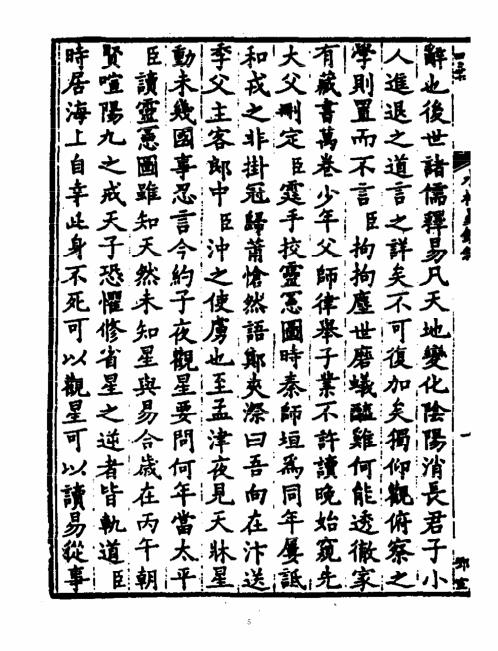 辭也後世諸儒釋易凡天地變化陰陽消長君子小
人進退之道言之詳矣不可復加矣獨仰觀俯察之
學則置而不言臣拘拘塵世磨蟻醯雞何能透徹家
有藏書萬卷少年父師律舉子業不許讀晩始窺先
大父刪定臣霆手挍靈憲圖時秦師垣爲同年屢詆
和戎之非掛冠歸莆愴然語鄭夾漈曰吾向在汴送
季父主客郎中臣沖之使虜也至孟津夜見天牀星
動未幾國事忍言今約子夜觀星要問何年當太平
臣讀靈憲圖雖知天然未知星與易合歲在丙午朝
賢喧陽九之戒天子恐懼修省星之逆者皆軌道臣
時居海上自幸此身不死可以觀星可以讀易從事
一
5